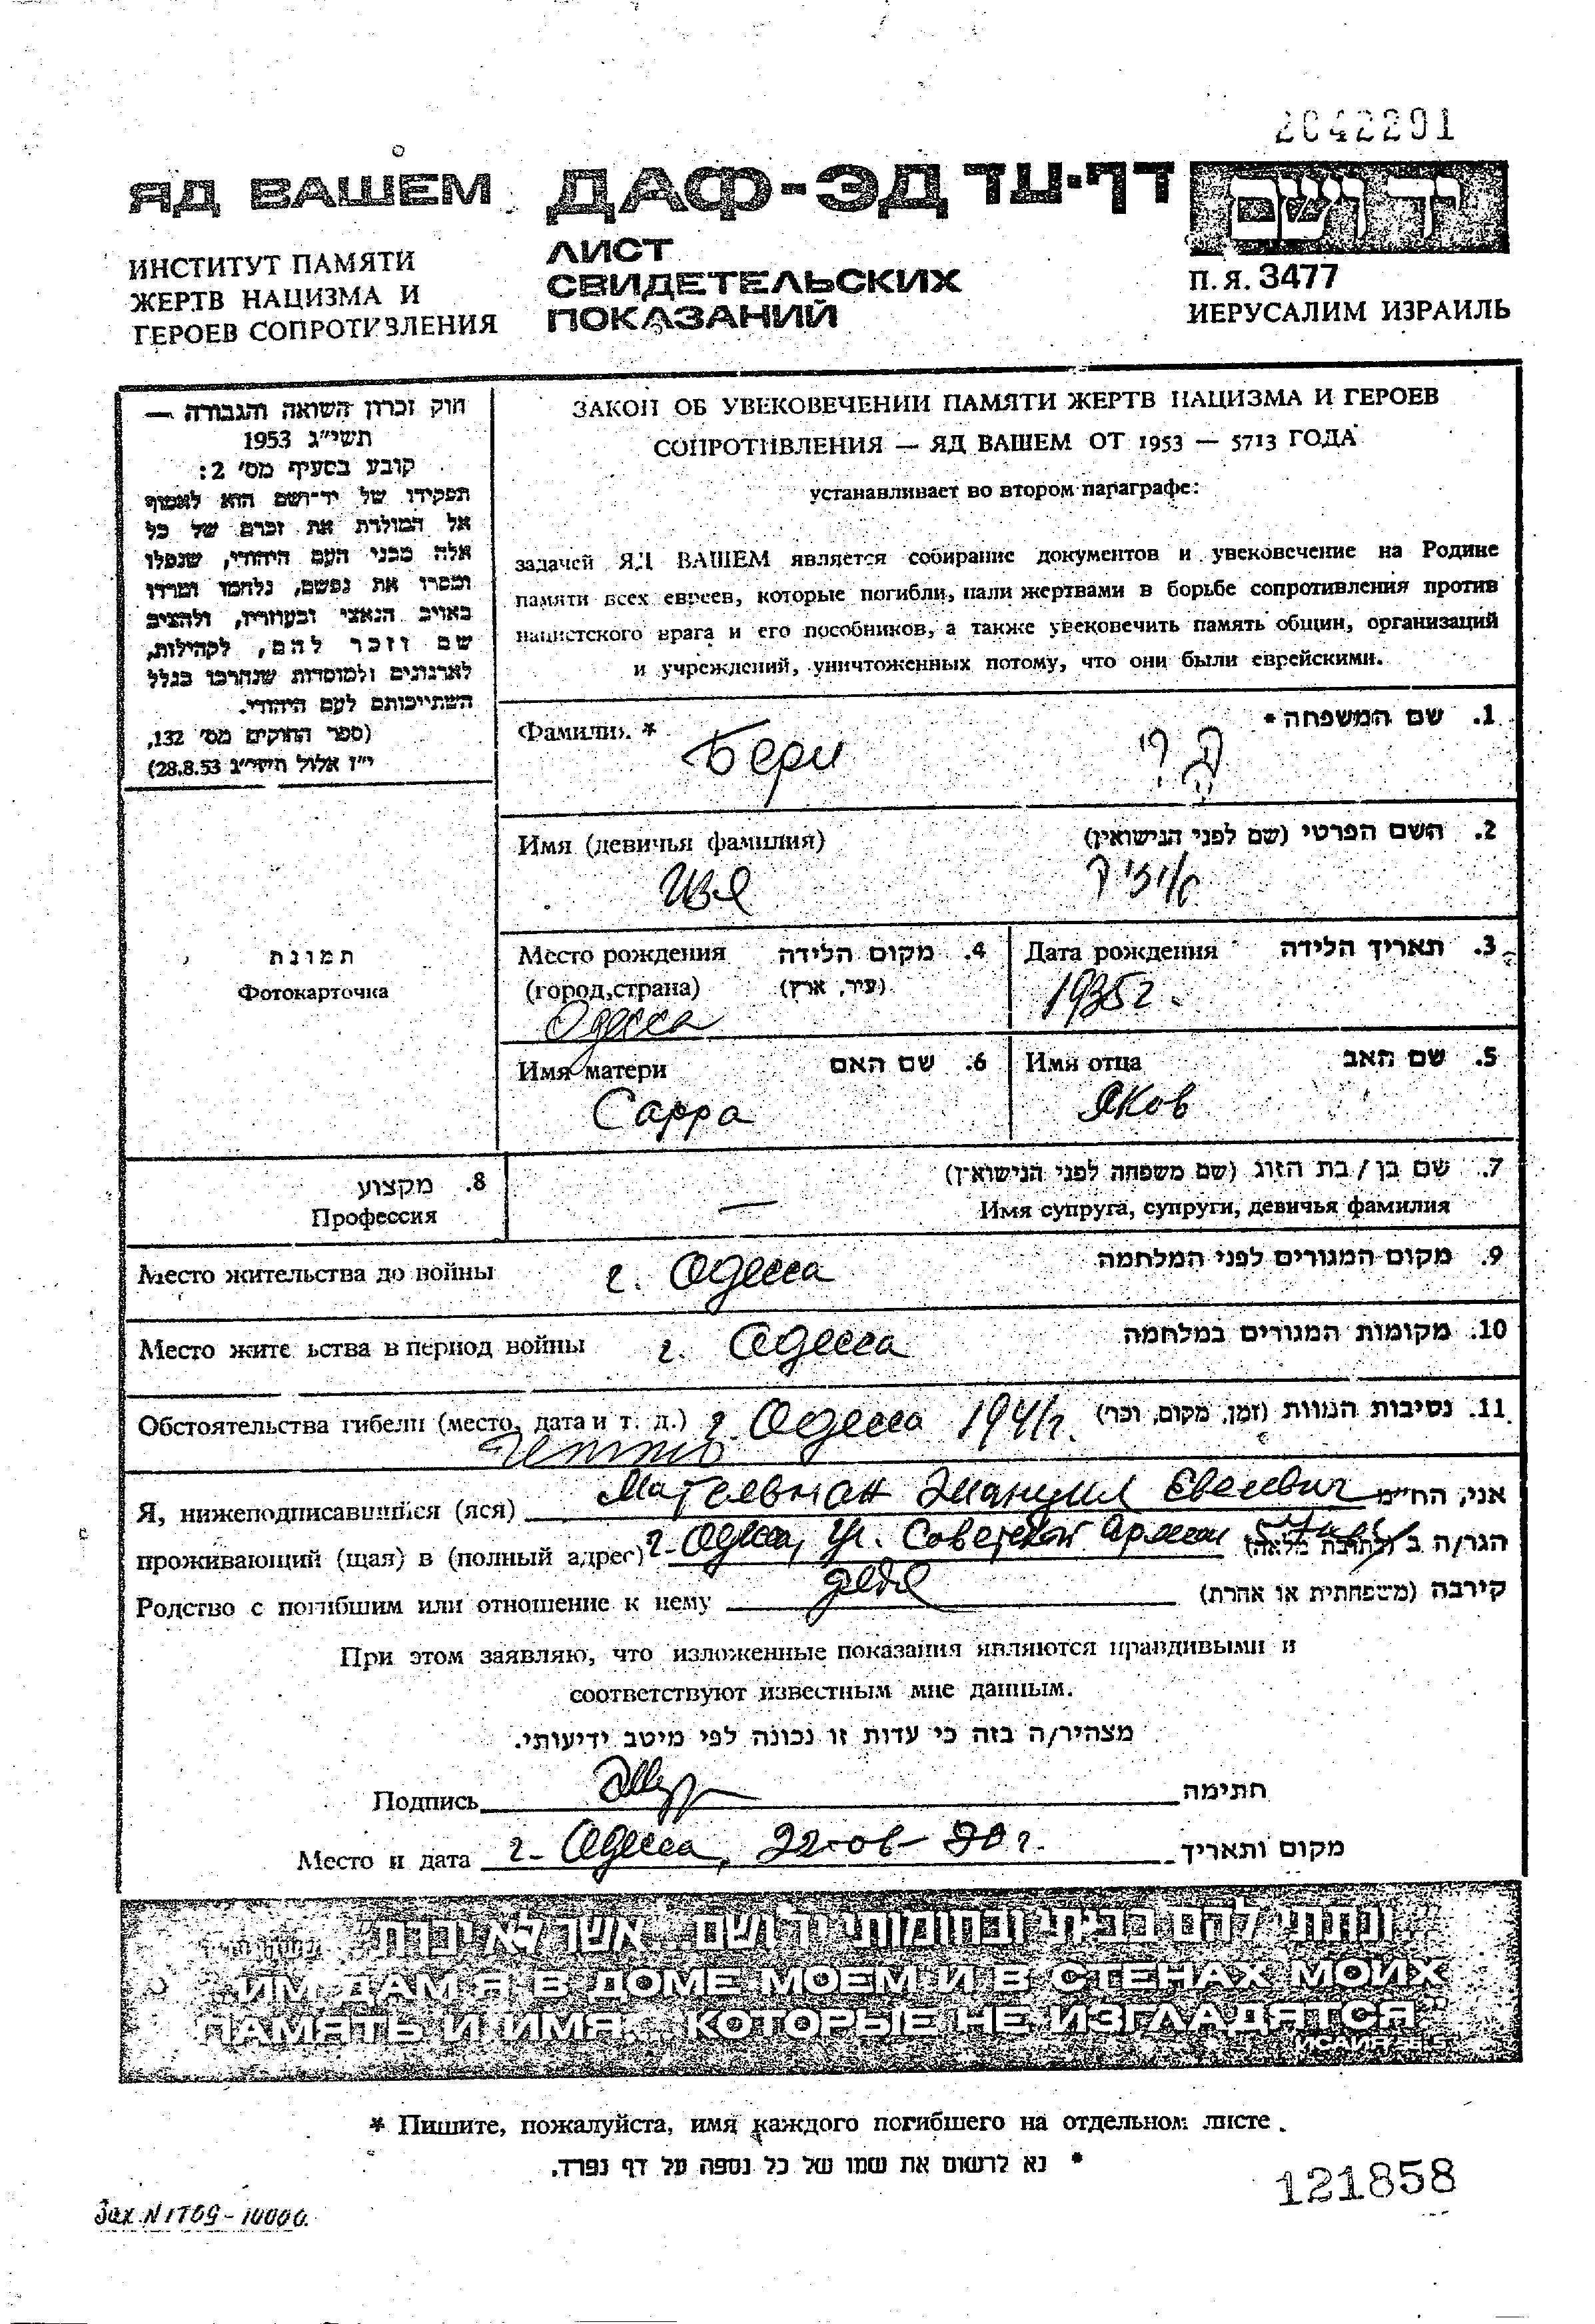 2042291
ЯД ВАШЕМ ДАФ-ЭД דף-עד יד ושם
ИНСТИТУТ ПАМЯТИ
ЖЕРТВ НАЦИЗМА И
ГЕРОЕВ СОПРОТИВЛЕНИЯ
ЛИСТ
СВИДЕТЕЛЬСКИХ
ПОКАЗАНИЙ
П.Я. 3477
ИЕРУСАЛИМ ИЗРАИЛЬ
חוק זכרון השואה והגבורה —
תשי״ג 1953
קובע בסעיף מס׳ 2:
תפקידו של יד־ושם הוא לאסוף
אל המולדת את זכרם של כל
אלה מבני העם היהודי, שנפלו
ומסרו את נפשם, נלחמו ומרדו
באויב הנאצי ובעוזריו, ולהציב
שם וזכר להם, לקהילות,
לארגונים ולמוסדות שנחרבו בגלל
השתייכותם לעם היהודי.
(ספר החוקים מס׳ 132,
י״ז אלול תשי״ג 28.8.53)
ЗАКОН ОБ УВЕКОВЕЧЕНИИ ПАМЯТИ ЖЕРТВ НАЦИЗМА И ГЕРОЕВ
СОПРОТИВЛЕНИЯ — ЯД ВАШЕМ ОТ 1953 — 5713 ГОДА
устанавливает во втором параграфе:
задачей ЯД ВАШЕМ является собирание документов и увековечение на Родине
памяти всех евреев, которые погибли, пали жертвами в борьбе сопротивления против
нацистского врага и его пособников, а также увековечить память общин, организаций
и учреждений, уничтоженных потому, что они были еврейскими.
Фамилия * 1. שם המשפחה *
Бери
Имя (девичья фамилия) 2. השם הפרטי (שם לפני הנישואין)
Изя
תמונת
Фотокарточка
Место рождения 4. מקום הלידה
(город,страна) (עיר, ארץ)
Одесса
Дата рождения 3. תאריך הלידה
1935 г.
Имя матери 6. שם האם
Сарра
Имя отца 5. שם האב
Яков
8. מקצוע
Профессия
7. שם בן / בת הזוג (שם משפחה לפני הנישואין)
— Имя супруга, супруги, девичья фамилия
Место жительства до войны г. Одесса 9. מקום המגורים לפני המלחמה
Место жительства в период войны г. Одесса 10. מקומות המגורים במלחמה
Обстоятельства гибели (место, дата и т. д.) г. Одесса 1941 г. 11. נסיבות המוות (זמן, מקום, וכו׳)
Я, нижеподписавшийся (яся) Эмануил אני, הח״מ
проживающий (щая) в (полный адрес) г. Одесса, ул. Советской Армии הגר/ה ב (כתובת מלאה)
Родство с погибшим или отношение к нему дядя קירבה (משפחתית או אחרת)
При этом заявляю, что изложенные показания являются правдивыми и
соответствуют известным мне данным.
מצהיר/ה בזה כי עדות זו נכונה לפי מיטב ידיעותי.
Подпись חתימה
Место и дата г. Одесса, 90 г. מקום ותאריך
„ונתתי להם בביתי ובחומותי יד ושם... אשר לא יכרת״
„ИМ ДАМ Я В ДОМЕ МОЕМ И В СТЕНАХ МОИХ
ПАМЯТЬ И ИМЯ... КОТОРЫЕ НЕ ИЗГЛАДЯТСЯ.”
* Пишите, пожалуйста, имя каждого погибшего на отдельном листе.
* נא לרשום את שמו של כל נספה על דף נפרד.
121858
Зак. N 1709 - 10000.